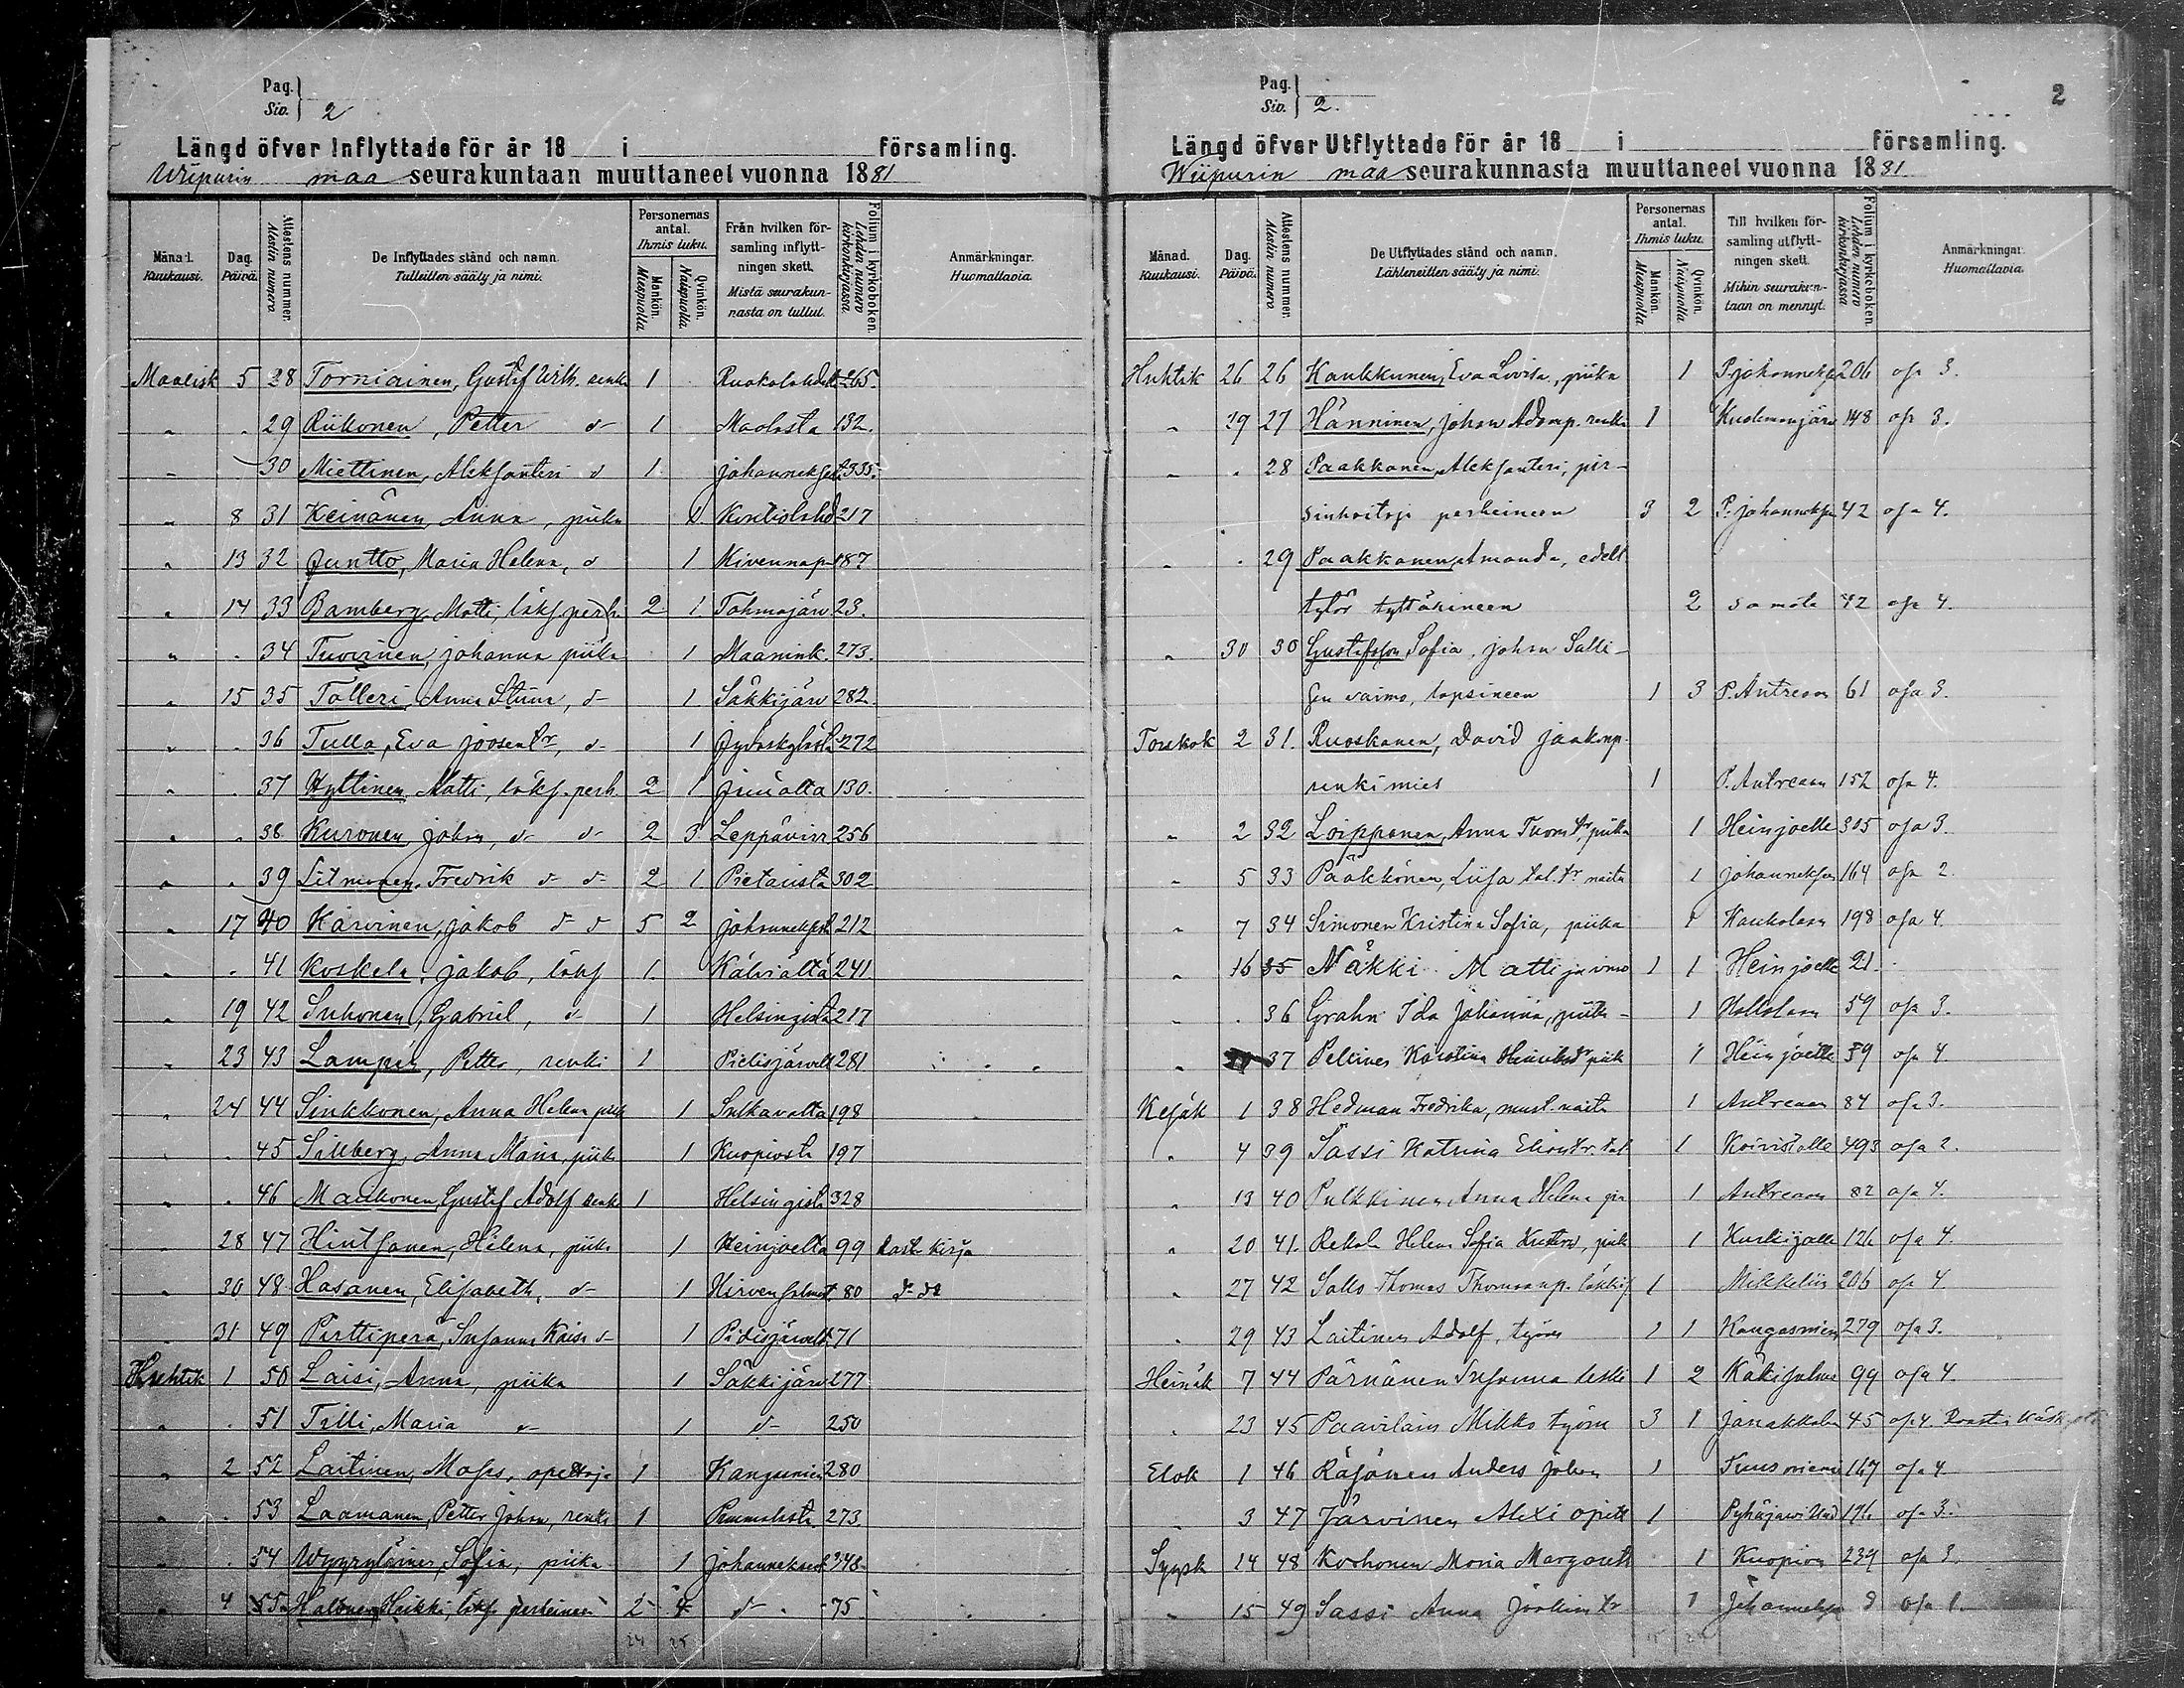 Pag.
Siv. 2
Längd öfver Inflyttade för år 18 i församling.
Wiipurin maa seurakuntaan muuttaneet vuonna 1881
Månad. Kuukausi. Dag. Päivä. Attestens nummer. Atestin numero De Inflyttades stånd och namn. Tulleitten sääty ja nimi. Personernas antal. Ihmis luku. Mankön. Miespuolia Qvinkön. Naispuolia. Från hvilken församling inflyttningen skett. Mistä seurakunnasta on tullut. Folium i kyrkoboken. Lehden numero kirkonkirjassa. Anmärkningar. Huomattavia.
Maalisk 5 28 Torniainen, Gustaf Wilh. renk 1 Ruokolahdelt 265.
" . 29 Riikonen, Petter d 1 Maolasta 132.
" 30 Miettinen, Aleksanteri d 1 Johanneksest 335.
" 8 31 Keinänen, Anna, piika 1 Kontiolahd 217
" 13 32 Juntto, Maria Helena, d 1 Kivennap 187
" 14 33 Bamberg, Matti, löks. perh. 2 1 Tohmajärv 23.
" . 34 Tuovinen, Johanna piika 1 Maanink. 273.
" 15 35 Talleri, Anna Stiina, d 1 Säkkijärv 282.
" . 36 Tulla, Eva Joosent., d 1 Jyväskyläst 272
" . 37 Hyttinen, Matti, löks. perh. 2 1 130.
" . 38 Kuronen, Johan, d d 2 3 Leppävirr 256
" . 39 Litmanen, Fredrik d d 2 1 302
" 17 40 Karvinen, Jakob d d 5 2 Johanneksest 212
" . 41 Koskela, Jakob, löks 1 Kälviältä 241
" 19 42 Suhonen, Gabriel, d 1 Helsingistä 217
" 23 43 Lampén, Petter, renki 1 Pielisjärvelt 281
" 24 44 Sinkkonen, Anna Helena piik 1 Sulkavalta 198
" . 45 Sillberg, Anna Maria, piik 1 Kuopiosta 197
" . 46 Maukonen, Gustaf Adolf renk 1 Helsingistä 328
" 28 47 Hintsanen, Helena, piik 1 Heinjoelta 99 Rast. kirja
" 30 48 Hasanen, Elisabeth, d 1 Hirvensalmelt 80 d d
" 31 49 Perttiperä, Susanna Kaisa d 1 Pielisjärvelt 71
Huhtik 1 50 Laisi, Anna, piika 1 Säkkijärv 277
" . 51 Tilli, Maria d 1 d 250
" 2 52 Laitinen, Moses, opettaja 1 Kangasniem 280
" . 53 Laamanen, Petter Johan, renki 1 273.
" . 54 Wyyryläinen, Sofia, piika 1 Johanneksest 348
" 4 55 Halonen, Heikki löks. perheineen 2 4 d 75
24 25
Pag.
Siv. 2.
2
Längd öfver Utflyttade för år 18 i församling.
Wiipurin maa seurakunnasta muuttaneet vuonna 1881.
Månad. Kuukausi. Dag. Päivä. Attestens nummer. Atestin numero De Utflyttades stånd och namn. Lähteneitten sääty ja nimi. Personernas antal. Ihmis luku. Mankön. Miespuolia Qvinkön. Naispuolia Till hvilken församling utflyttningen skett. Mihin seurakuntaan on mennyt. Folium i kyrkoboken. Lehden numero kirkonkirjassa. Anmärkningar. Huomattavia.
Huhtik 26 26 Kaukkunen, Eva Lovisa, piika 1 P. Johanneks 206 osa 3.
" 29 27 Hänninen, Johan Adamp. renki 1 Kuolemajärv 148 osa 3.
" . 28 Paakkanen, Aleksanteri, pir-
sinhoitaja perheineen 3 2 P. Johanneks 42 osa 4.
" . 29 Paakkanen, Amanda, edell
tytär tyttärineen 2 samote 42 osa 4.
" 30 30 Gustafsson Sofia, Johan Salli-
sen vaimo, lapsineen 1 3 P. Antreaan 61 osa 3.
Toukok 2 31. Ruoskanen, David Jaakonp.
renkimies 1 P. Antreaan 152 osa 4.
" 2 32 Loipponen, Anna Tuomtr. piika 1 Heinjoelle 305 osa 3.
" 5 33 Pääkkönen, Liisa tal. tr. neito 1 Johanneksen 164 osa 2.
" 7 34 Simonen Kristina Sofia, piika 1 Kaukolaan 198 osa 4.
" 16 35 Näkki Matti ja vmo 1 1 Heinjoelle 21.
" . 36 Grahn Ida Johanna, piik 1 Hollolaan 59 osa 3.
" 37 Pellinen Karolina Henrikstr piik 1 Heinjoelle 59 osa 4
Kesäk 1 38 Hedman Fredrika, must. neito 1 Antreaan 84 osa 3.
" 4 39 Sassi Katrina Eliastr. tal 1 Koivistolle 493 osa 2.
" 13 40 Pulkkinen Anna Helena pia 1 Antreaan 82 osa 4.
" 20 41. Rekola Helena Sofia piik 1 126 osa 4.
" 27 42 Sallo Thomas Thomaanp. 1 Mikkeliin 206 osa 4
" 29 43 Laitinen Adolf, työm 1 1 Kangasniem 279 osa 3.
Heinäk 7 44 Pärnänen Susanna leski 1 2 Käkisalm 99 osa 4.
" 23 45 Paavilain Mikko työm 3 1 Janakkalan 45 osa 4.
Elok 1 46 Räsänen Anders Johan 1 Tuusniemi 167 osa 4
" 3 47 Järvinen Alexi opitt 1 Pyhäjärv 176 osa 3.
Syysk 14 48 Korhonen Maria Margareth 1 Kuopion 239 osa 3.
" 15 49 Sassi Anna tr 1 Johanneks 8 osa 1.